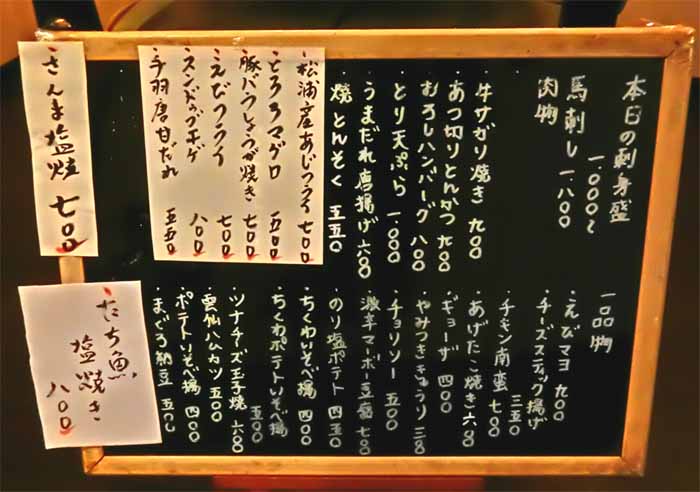 本日の刺身盛
一、〇〇〇〜
馬刺し 一、八〇〇
肉物
・牛サガリ焼き 九〇〇
・あつ切りとんかつ 九〇〇
・むろしハンバーグ 八〇〇
・とり天ぷら 一、〇〇〇
・うまだれ唐揚げ 六〇〇
・焼とんそく 五五〇
・松浦産あじフライ 七〇〇
・とろろマグロ 五〇〇
・豚バラしょうが焼き 七〇〇
・えびフライ 七〇〇
・スンドゥブチゲ 八〇〇
・手羽唐甘だれ 五五〇
・さんま塩焼 七〇〇
一品物
・えびマヨ 九〇〇
・チーズスティック揚げ
三五〇
・チキン南蛮 七〇〇
・あげたこ焼き 六〇〇
・ギョーザ 四〇〇
・やみつききゅうり 三八〇
・チョリソー 五〇〇
・激辛マーボー豆腐 七〇〇
・のり塩ポテト 四五〇
・ちくわいそべ揚 四〇〇
・ちくわポテトいそべ揚
五〇〇
・ツナチーズ玉子焼 六〇〇
・雲仙ハムカツ 五〇〇
・ポテトいそべ揚 四〇〇
・まぐろ納豆 五五〇
・たち魚
塩焼き
八〇〇